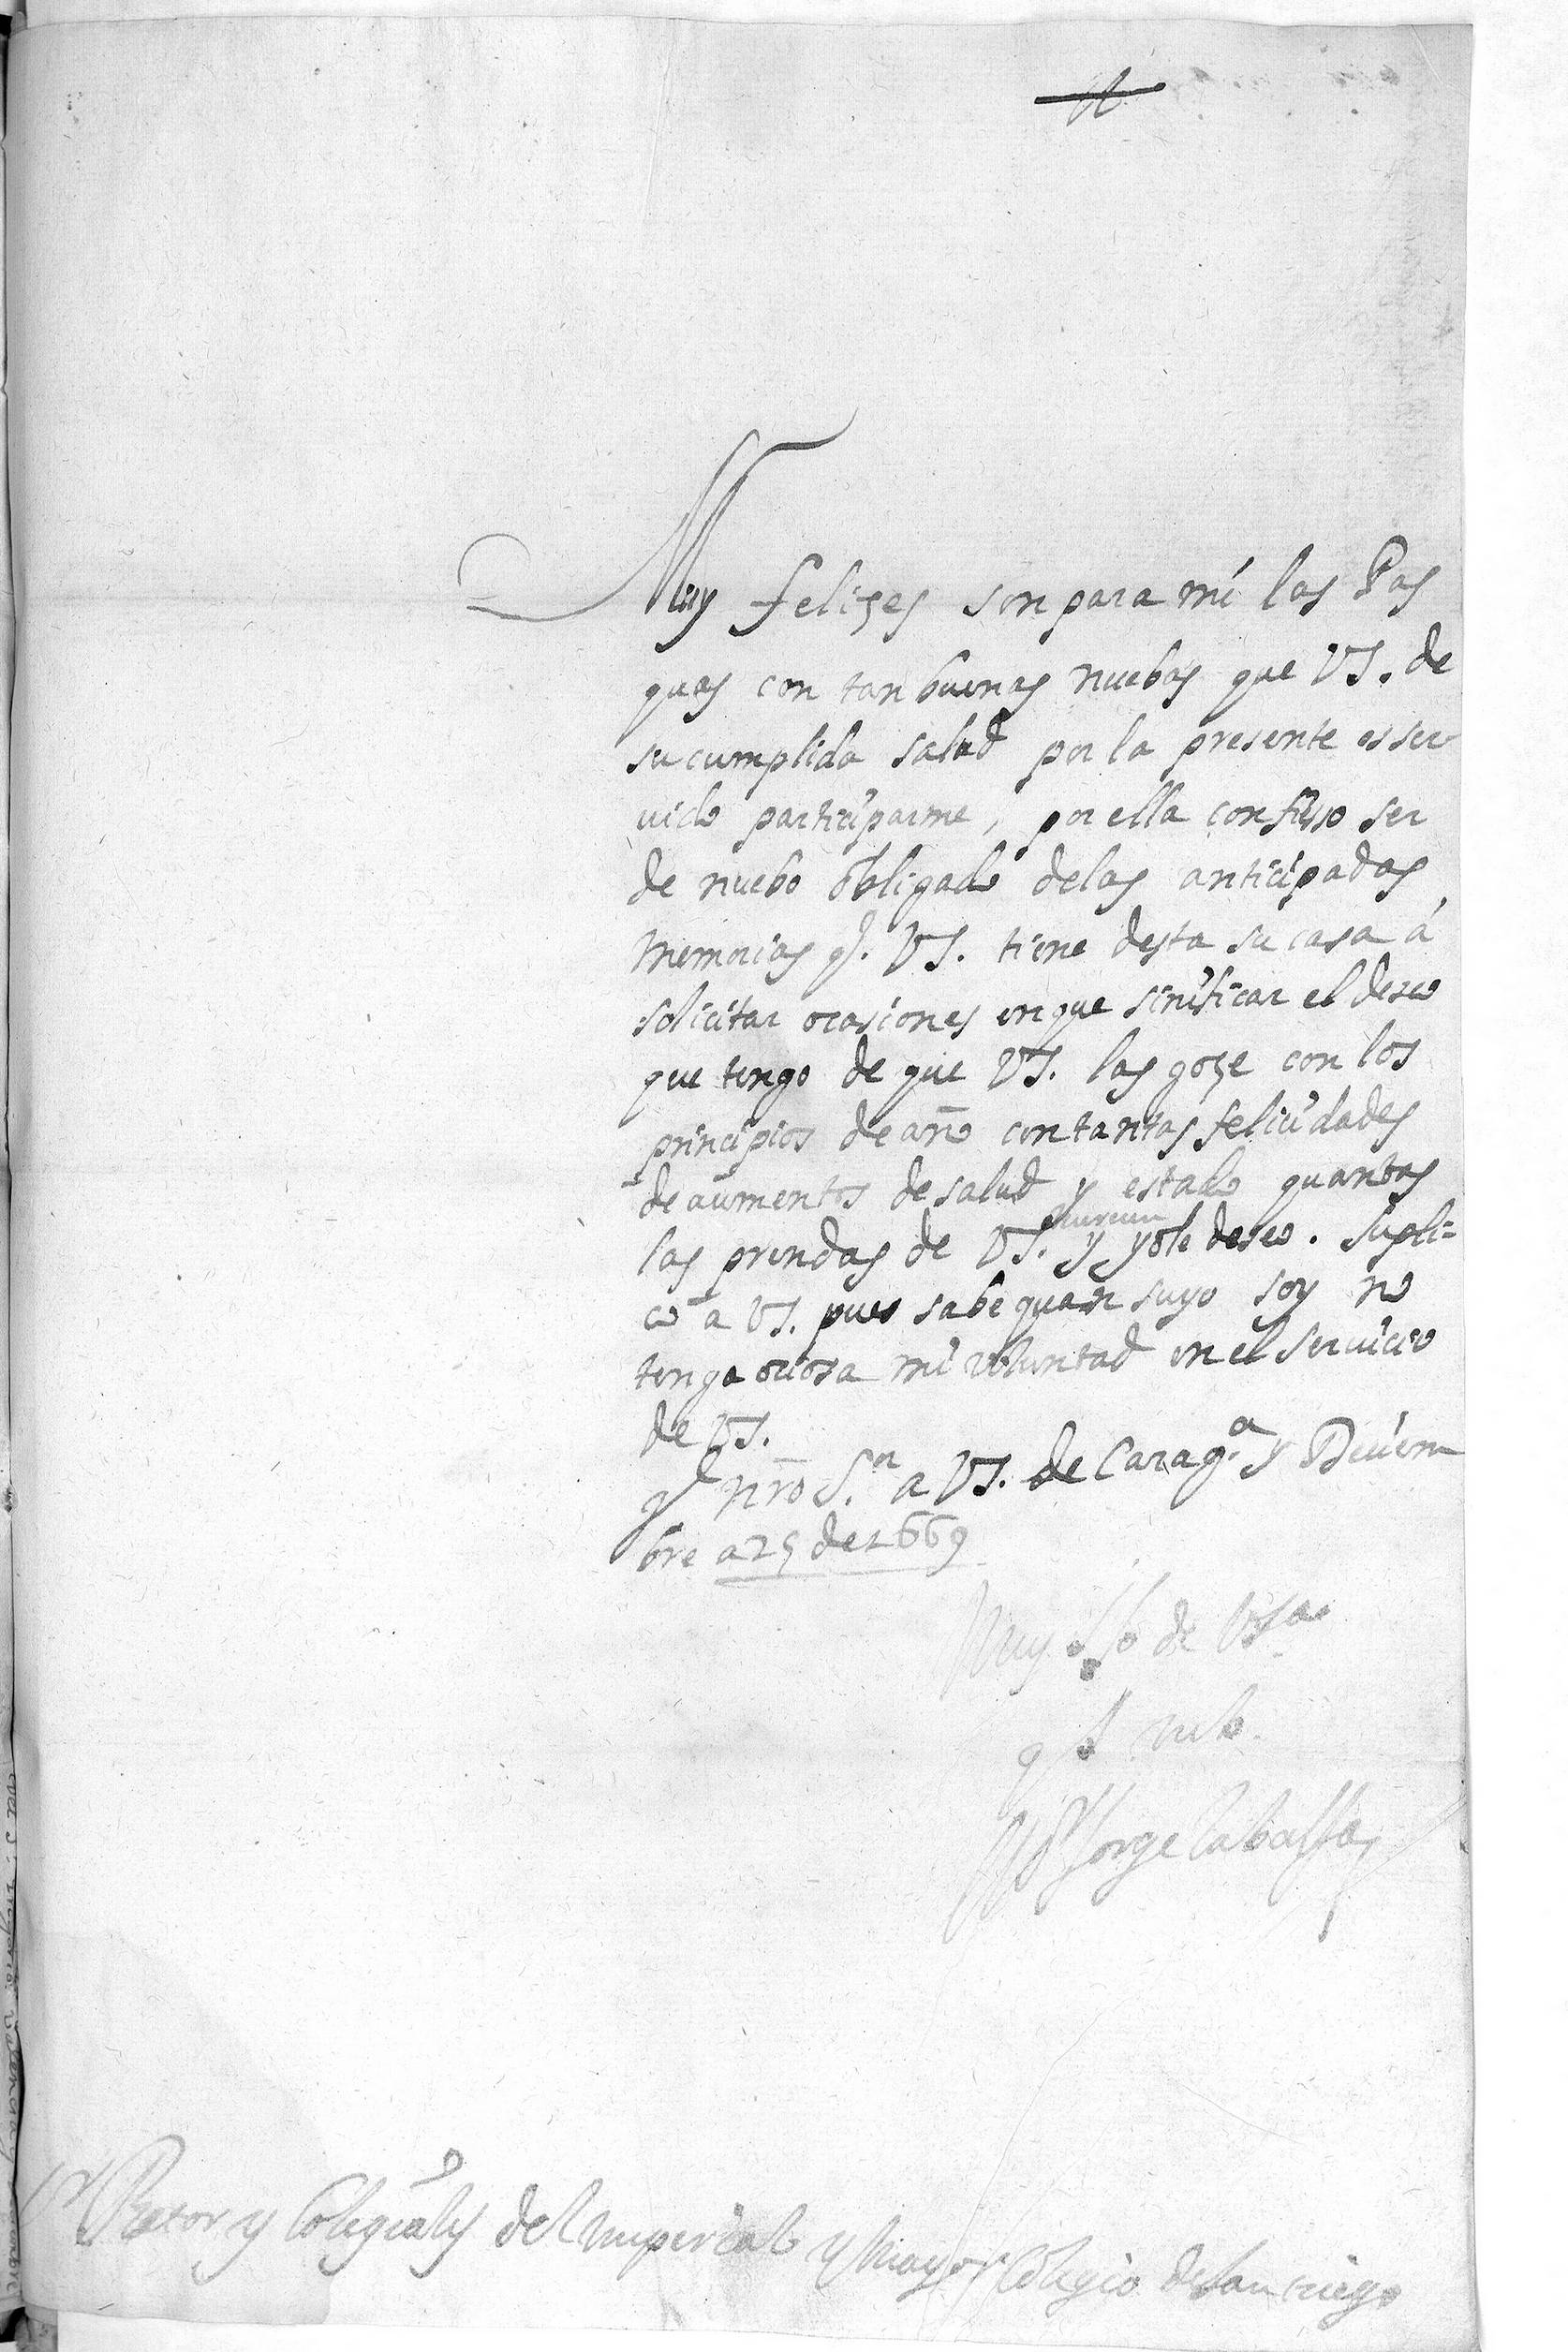 Muy feliçes son para mi las Pas
quas con tan buenas nuebas que VS. de
su cumplida salud por la presente es ser
uido participarme, por ella confieso ser
de nuebo obligado de las anticipadas
memorias q. VS. tiene desta su casa á
solicitar ocasiones en que sinificar el deseo
que tengo de que VS. las goçe con los
principios de año con tantas felicidades
de aumentos de salud y estado quantas
merecen
las prendas de VS. y yo le deseo. Supli=
co a VS. pues sabe quan suyo soy no
tenga ociosa mi voluntad en el seruicio
de VS.
g.e nro S.r a VS. de Carag.a y Diciem
bre a 25 de 1669
Muy de VSa.
q b
Jorge Caballa
Sr Retor y Colegiales del Imperial y Mayor Colegio de Santiago